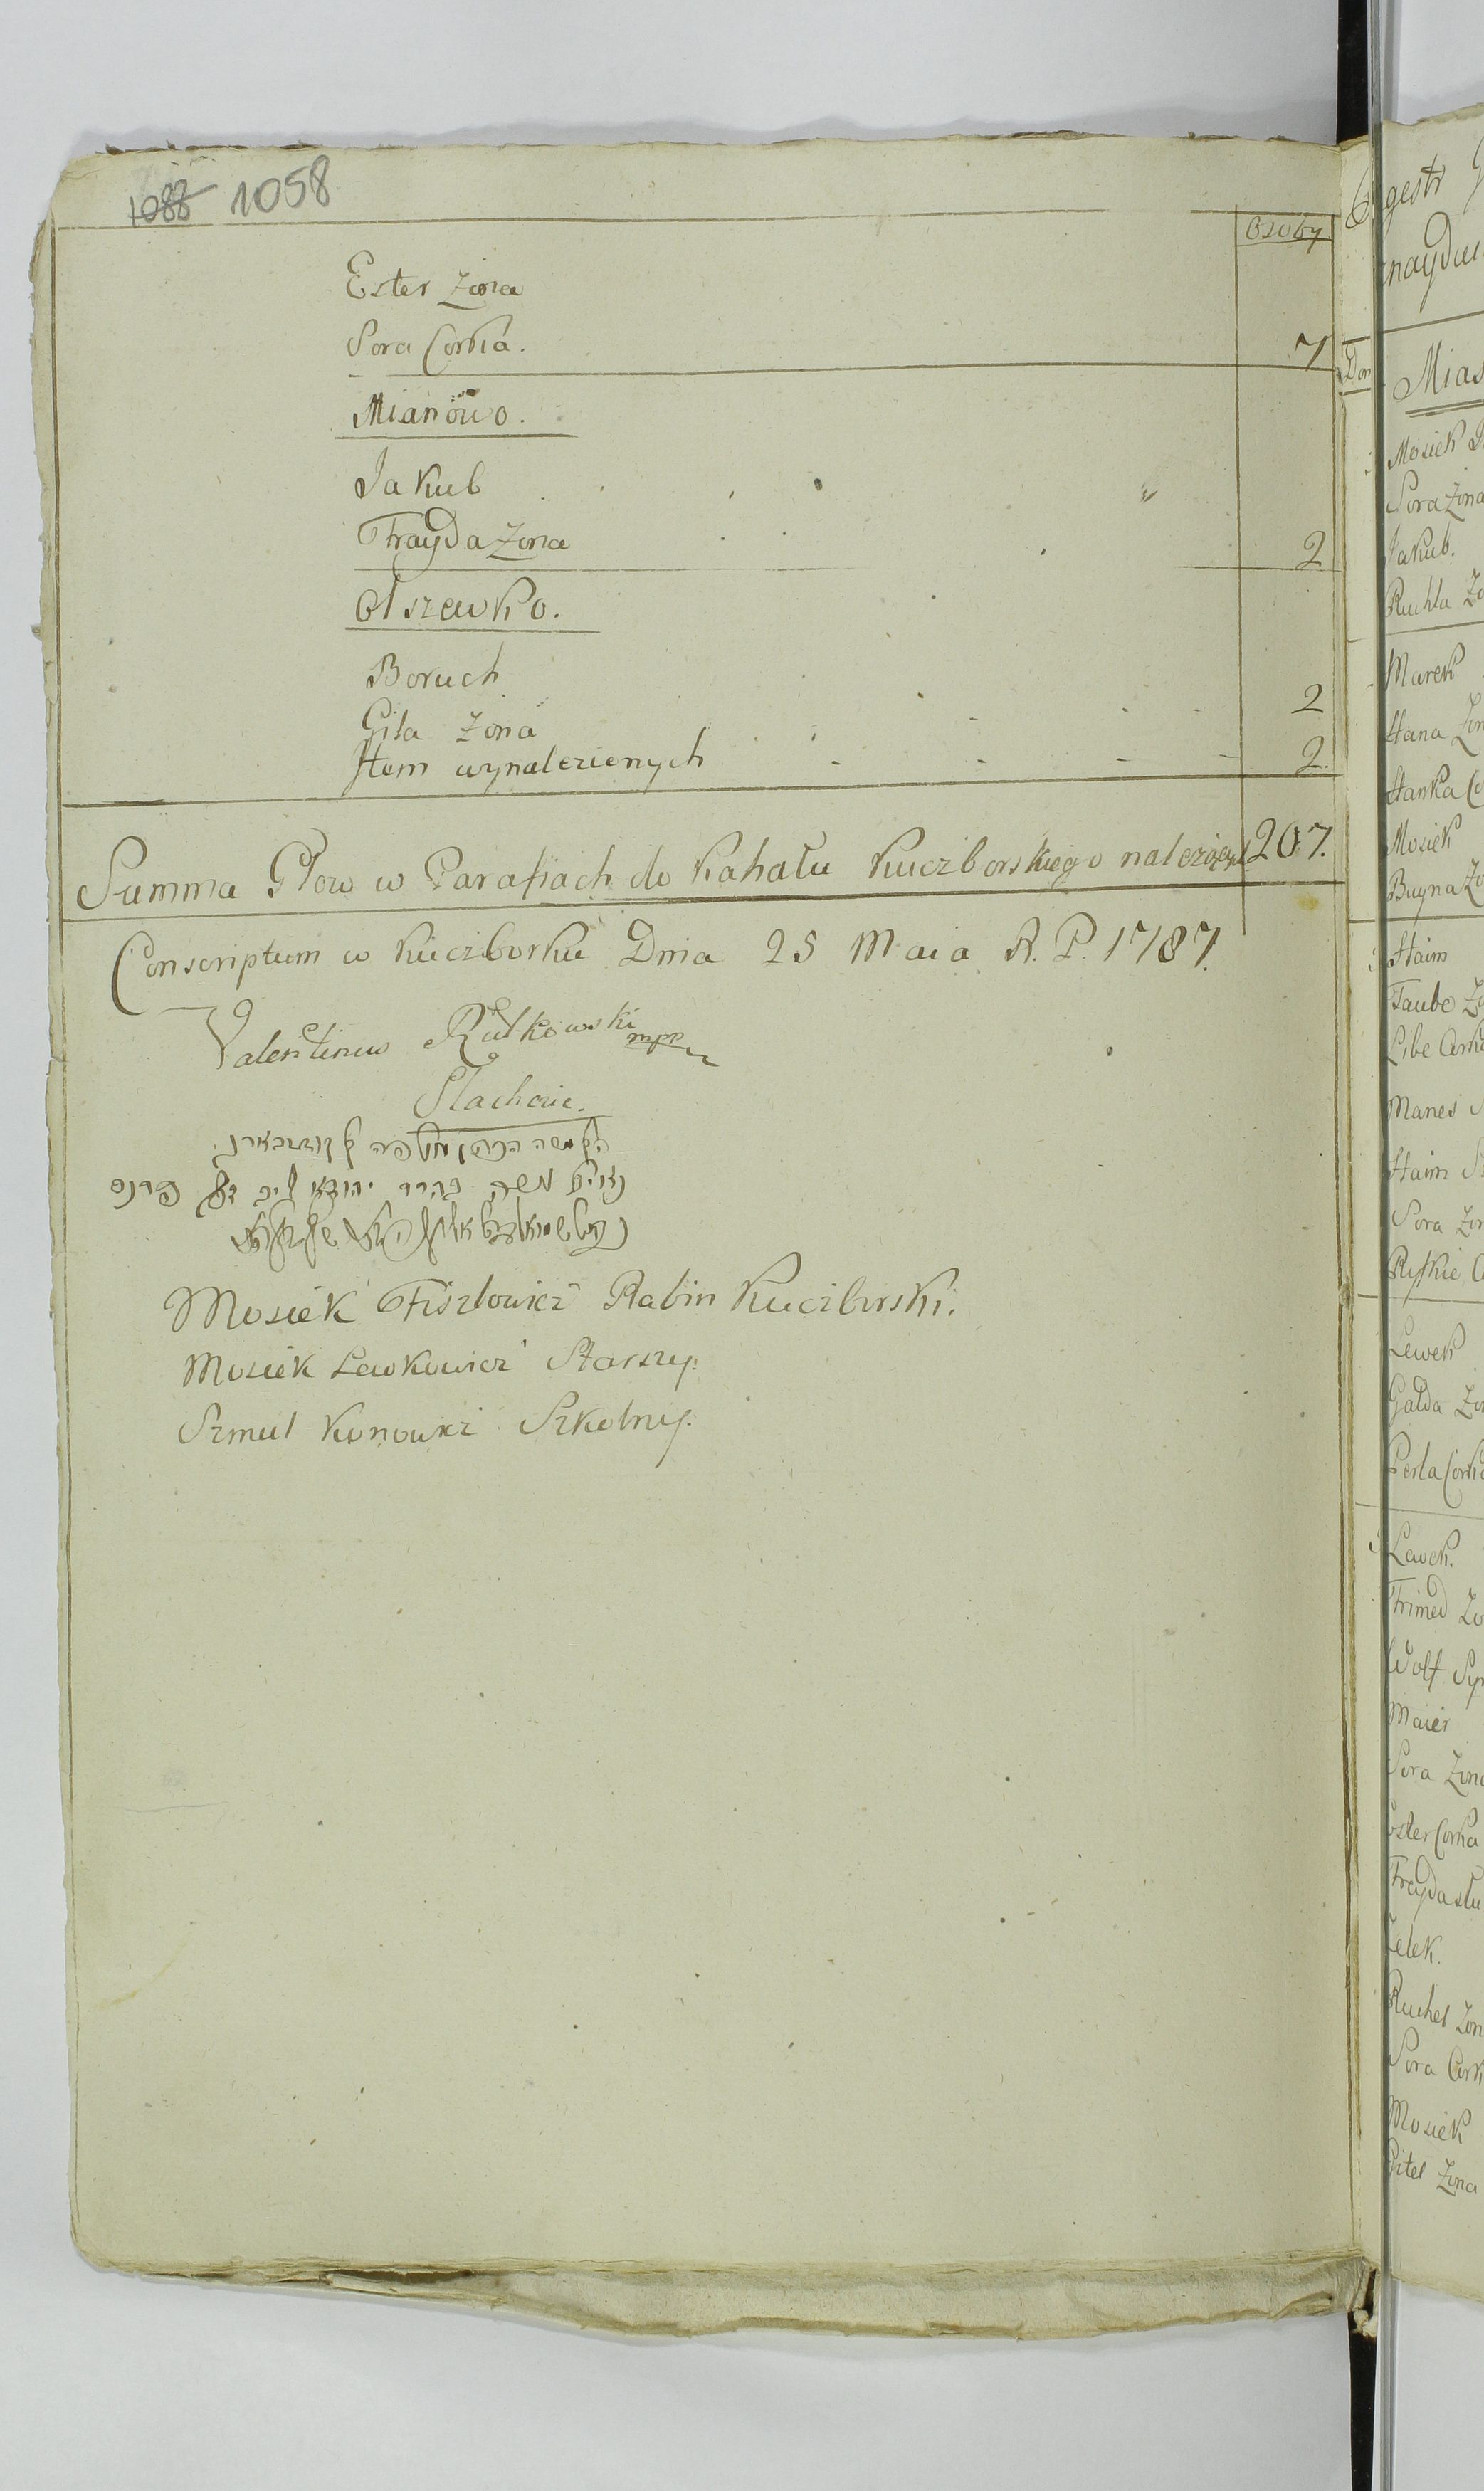 1088 1058
Osoby
Ester Zona
Sora Corka. 7
Mianowo.
Jakub
Frayda Zona 2
Olszewko.
Boruch
Gita Zona 2
Item wynalezienych 2.
Summa Głow w Parafiach do Kahału Kuczborskiego należących 207.
Conscriptum w Kuczborku Dnia 25 Maia R. P. 1787.
Valentinus Rutkowski mpp
משה
נאום משה בהרר יהודא ליב פרנס
Mosiek Fiszlowicz Rabin Kuczborski.
Mosiek Lewkowicz Starszy.
Szmul Konowicz Szkolny.
gestr
Mias
Mosiek
Sora Zona
Jakub.
Ruchla
Marek
Hana
Hanka
Mosiek
Buyna
Haim
Taube
Libe
Manes
Haim
Sora
Ryfkie
Lewek
Galda
Perla
Lewek.
Frimed
Wolf
Maier
Sora Zona
Ester Corka
Frayda
Zelek.
Ruchel
Sora
Mosiek
Gitel Zona